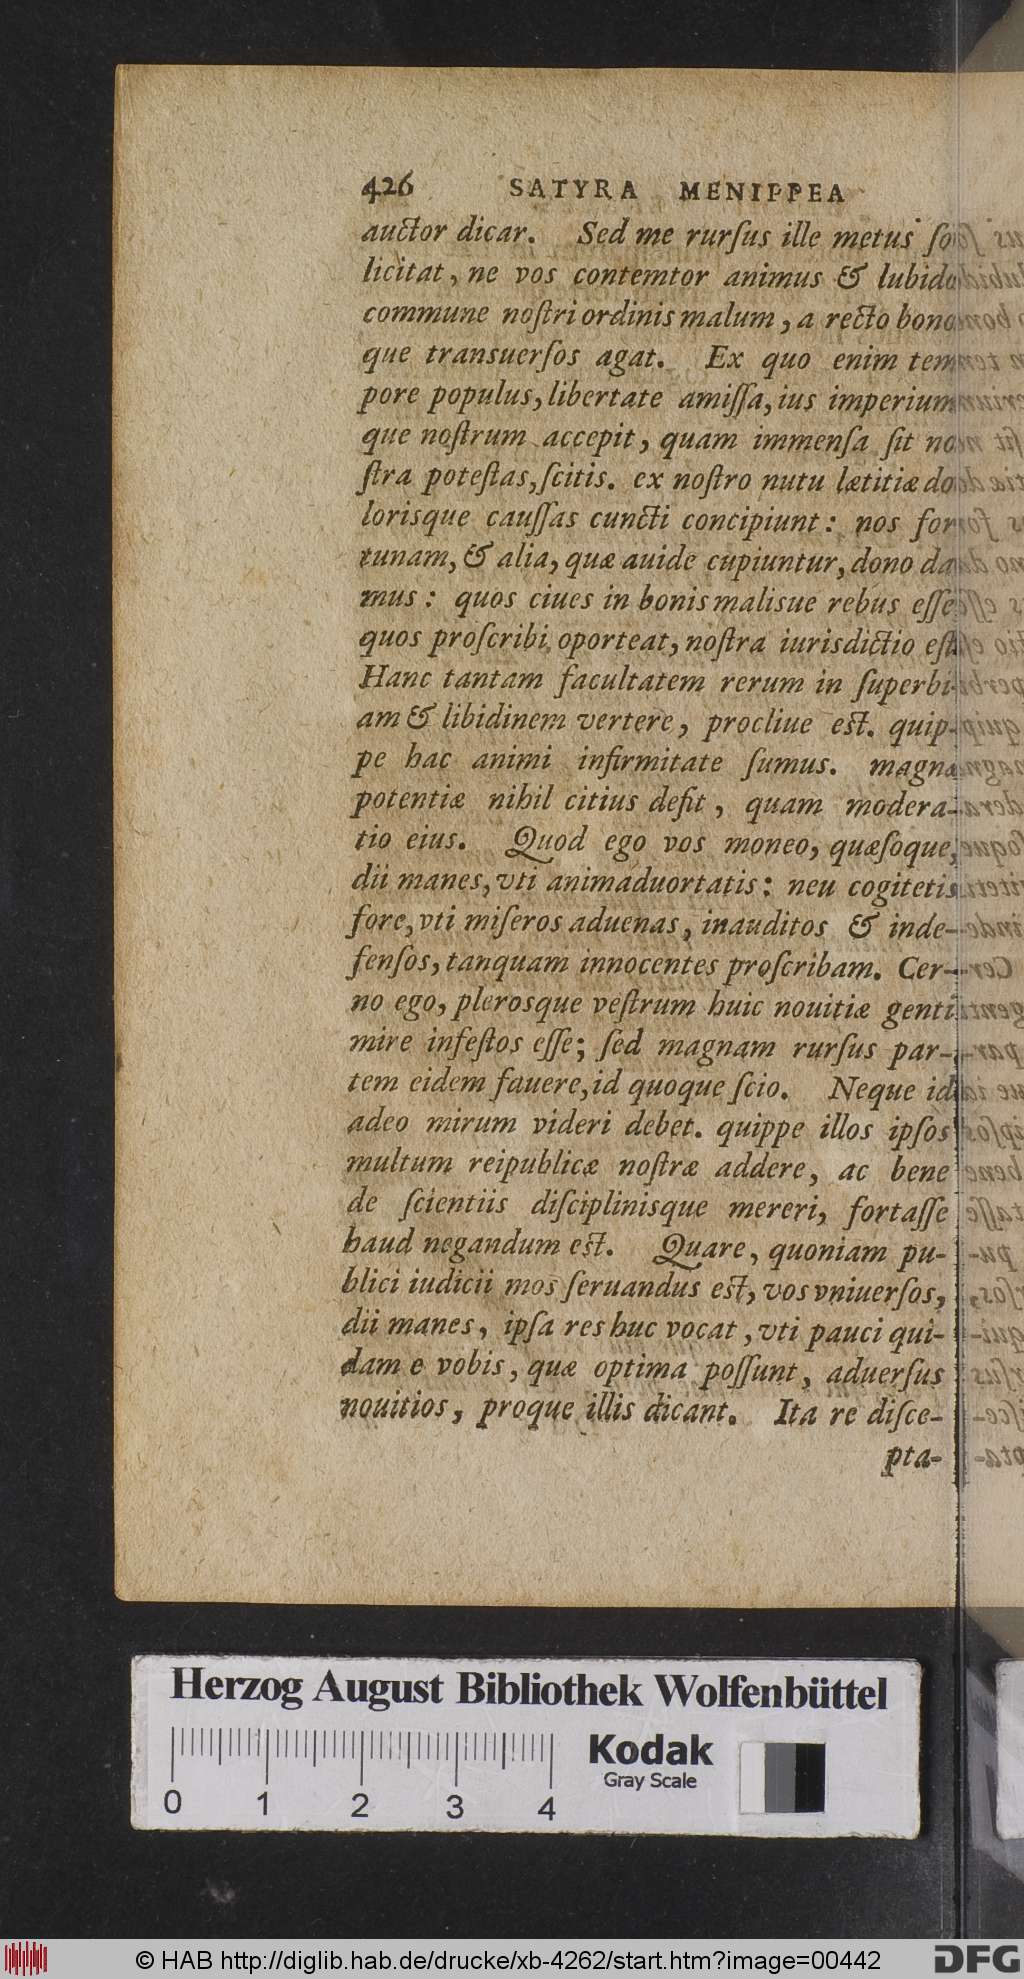 426 SATYRA MENIPPEA
auctor dicar. Sed me rurſus ille metus ſo
licitat, ne vos contemtor animus & lubido
commune noſtri ordinis malum, a recto bono
que transuerſos agat. Ex quo enim tem
pore populus, libertate amiſſa, ius imperium
que noſtrum accepit, quam immenſa ſit no
ſtra poteſtas, ſcitis. ex noſtro nutu lætitiæ do
lorisque cauſſas cuncti concipiunt: nos for
tunam, & alia, quæ auide cupiuntur, dono da
mus: quos ciues in bonis malisue rebus eſſe
quos proſcribi oporteat, noſtra iurisdictio eſt
Hanc tantam facultatem rerum in ſuperbi-
am & libidinem vertere, procliue eſt. quip-
pe hac animi infirmitate ſumus. magnæ
potentiæ nihil citius defit, quam modera-
tio eius. Quod ego vos moneo, quæſoque,
dii manes, vti animaduortatis: neu cogitetis
fore, vti miſeros aduenas, inauditos & inde-
fenſos, tanquam innocentes proſcribam. Cer-
no ego, plerosque veſtrum huic nouitiæ genti
mire infeſtos eſſe; ſed magnam rurſus par-
tem eidem fauere, id quoque ſcio. Neque id
adeo mirum videri debet. quippe illos ipſos
multum reipublicæ noſtræ addere, ac bene
de ſcientiis diſciplinisque mereri, fortaſſe
haud negandum eſt. Quare, quoniam pu-
blici iudicii mos ſeruandus eſt, vos vniuerſos,
dii manes, ipſa res huc vocat, vti pauci qui-
dam e vobis, quæ optima poſſunt, aduerſus
nouitios, proque illis dicant. Ita re diſce-
pta-
Herzog August Bibliothek Wolfenbüttel
Kodak
Gray Scale
0 1 2 3 4
© HAB http://diglib.hab.de/drucke/xb-4262/start.htm?image=00442
DFG